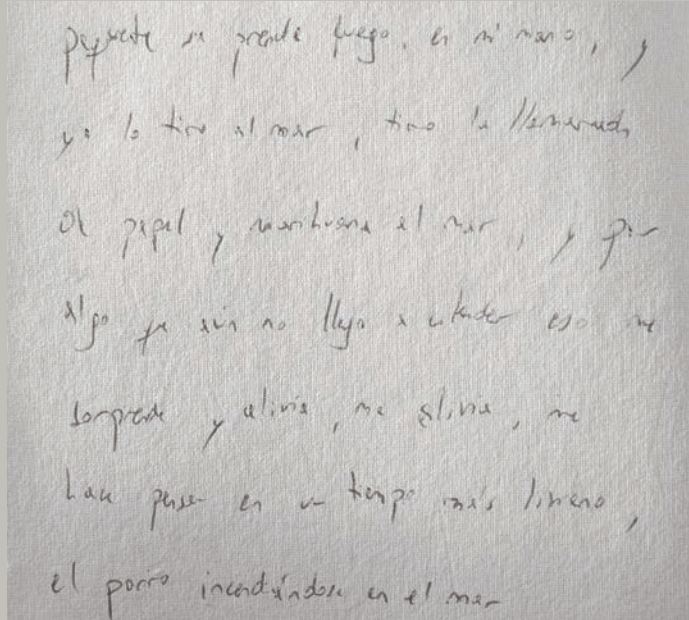 paquete se prende fuego, en mi mano, y
yo lo tiro al mar, tiro la llamarada
de papel y marihuana al mar, y por
algo que aún no llego a entender eso me
sorprende y alivia, me alivia, me
hace pensar en un tiempo más liviano,
el porro incendiándose en el mar